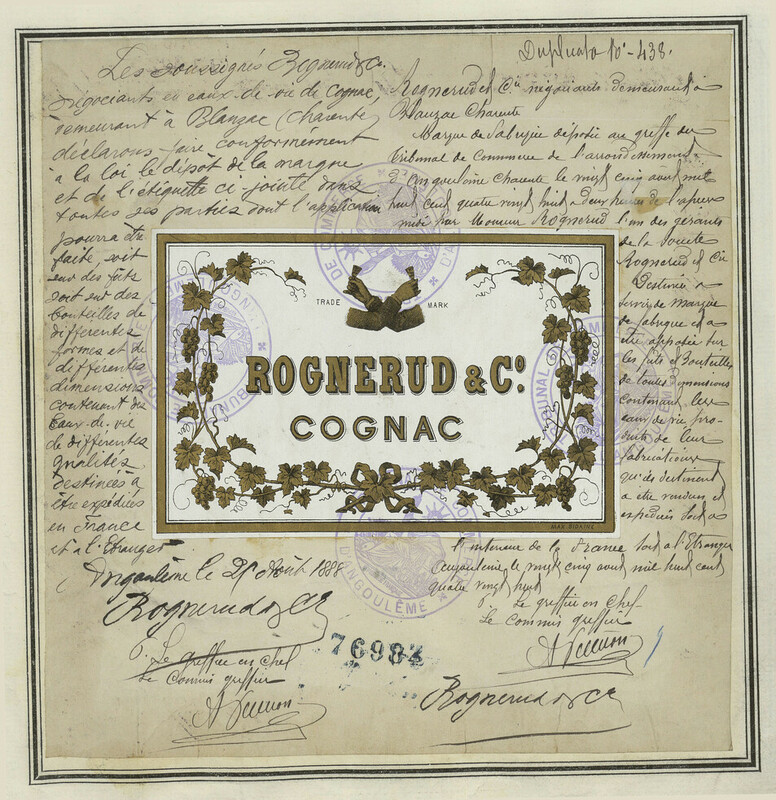 Duplicata N°- 438.
Les soussignés Rognerud & Co.
négociants en eaux-de-vie de Cognac,
demeurant à Blanzac (Charente)
déclarons faire conformément
à la loi le dépôt de la marque
et de l'étiquette ci jointe dans
toutes ses parties dont l'application
pourra être
faite, soit
sur des fûts
soit sur des
bouteilles de
différentes
formes et de
différentes
dimensions
contenant des
Eaux-de-vie
de différentes
qualités
destinées à
être expédiées
en France
et à l'Etranger
Angoulême le 25 Août 1888
Rognerud & Co
P. Le greffier en chef
Le Commis greffier
Rognerud et Cie négociants demeurant à
Blanzac Charente
Marque de fabrique déposée au greffe du
Tribunal de Commerce de l'arrondissement
d'Angoulême Charente le vingt cinq août mil
huit cent quatre vingt huit à deux heures de l'après
midi par Monsieur Rognerud l'un des gérants
de la Société
Rognerud et Cie
Destinée à
servir de marque
de fabrique et à
être apposée sur
les fûts et Bouteilles
de toutes dimensions
contenant les
eaux de vie pro-
duits de leur
fabrication
qui se destinent
à être vendus et
expédiés soit à
l'intérieur de la France soit à l'Etranger
Angoulême le vingt cinq août mil huit cent
quatre vingt huit
P. Le greffier en Chef
Le Commis greffier
Rognerud & Co
TRADE MARK
ROGNERUD & Co.
COGNAC
76983
D'ANGOULÊME